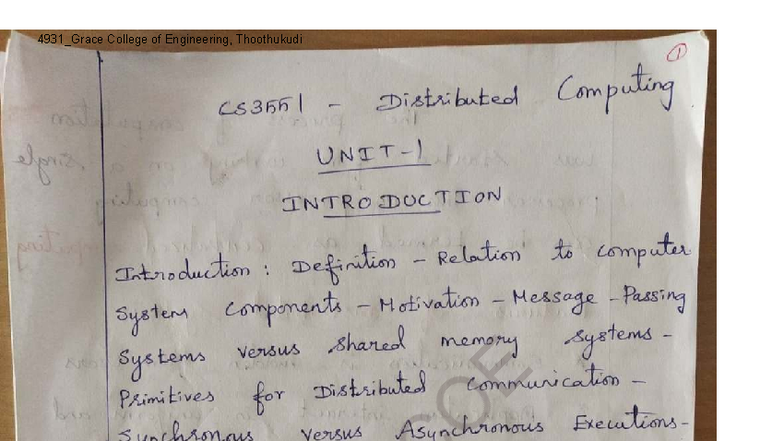 4931_Grace College of Engineering, Thoothukudi
1
CS3551 - Distributed Computing
UNIT-1
INTRODUCTION
Introduction : Definition - Relation to computer
System Components - Motivation - Message - Passing
Systems versus shared memory systems -
Primitives for Distributed Communication -
Synchronous versus Asynchronous Executions -
COE